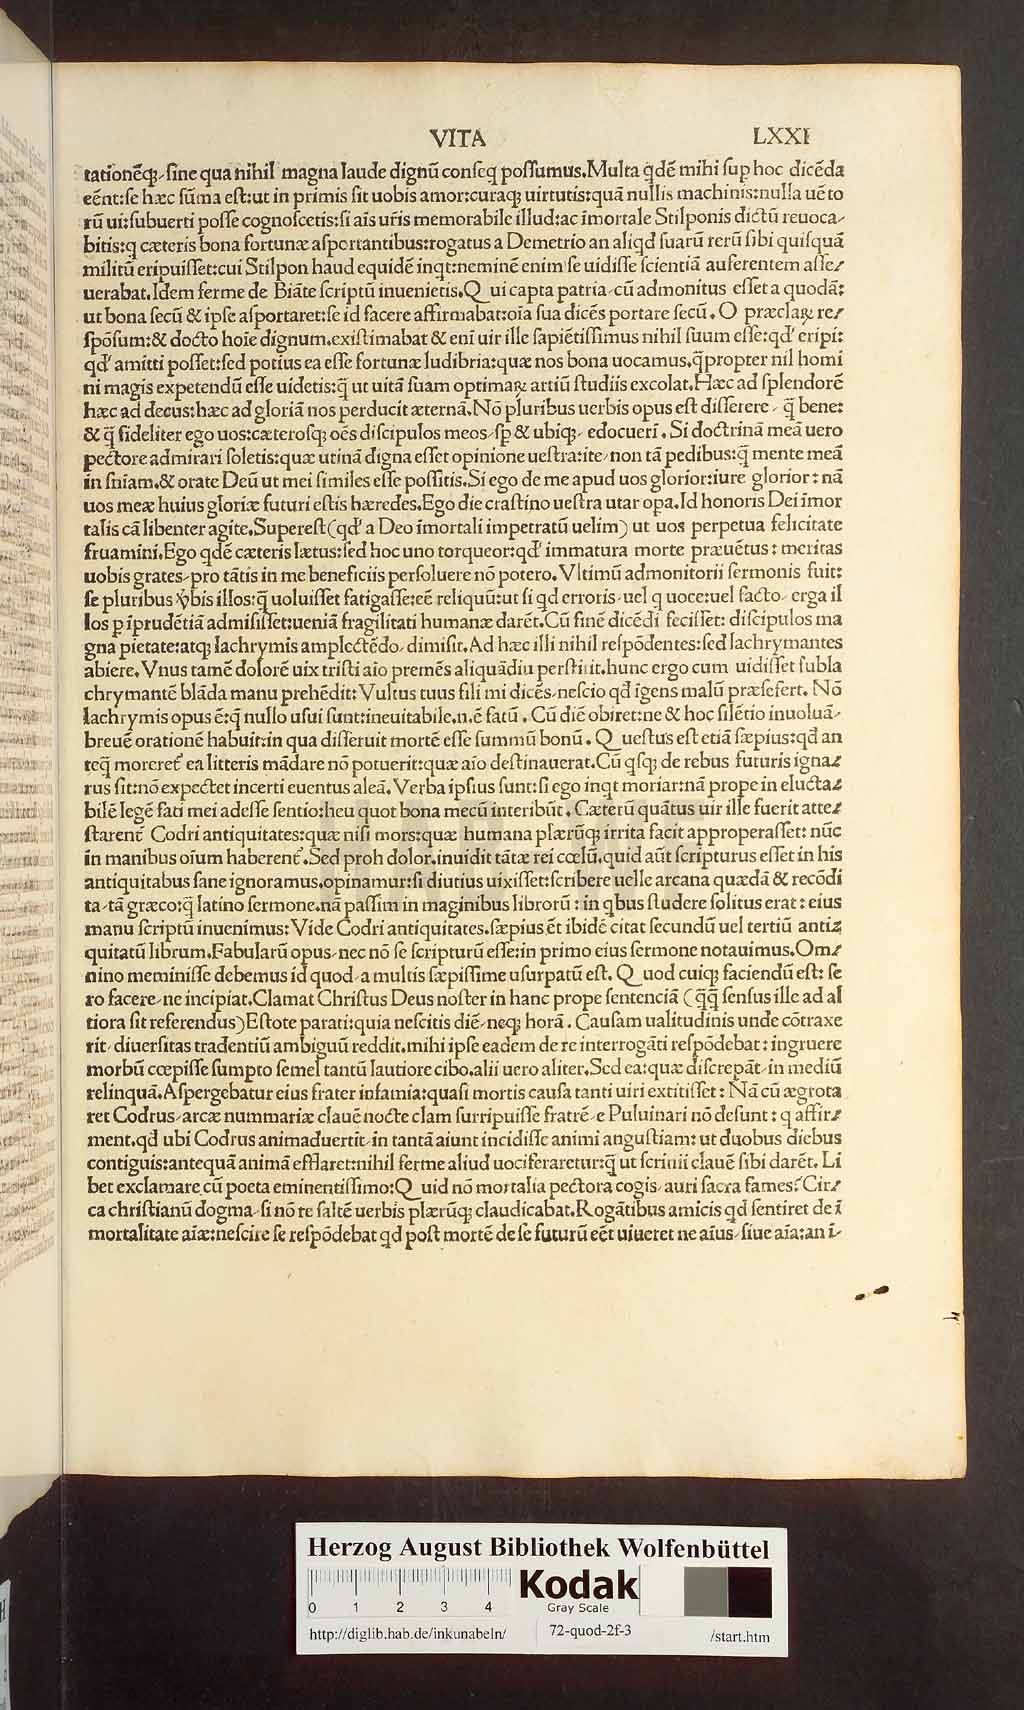 VITA LXXI
tationē꜄q; sine qua nihil magna laude dignū conseq possumus. Multa qdē mihi sup hoc dicēda
eēnt: se hæc sūma est: ut in primis sit uobis amor: curaq; uirtutis: quā nullis machinis: nulla uē to
rū ui: subuerti posse cognoscetis: si aīs uris memorabile illud: ac īmortale Stilponis dictū reuoca-
bitis: q cæteris bona fortunæ asportantibus: rogatus a Demetrio an aliqd suarū rerū sibi quisquā
militū eripuisset: cui Stilpon haud equidē inqt: neminē enim se uidisse scientiā auferentem asse/
uerabat. Idem ferme de Biāte scriptū inuenietis. Qui capta patria cū admonitus esset a quodā:
ut bona secū & ipse asportaret: se id facere affirmabat: oīa sua dicēs portare secū. O præclaꝝ re/
spōsum: & docto hoīe dignum. existimabat & enī uir ille sapiētissimus nihil suum esse: qđ eripi:
qđ amitti posset: sed potius ea esse fortunæ ludibria: quæ nos bona uocamus. q̄propter nil homi
ni magis expetendū esse uidetis: q̄ ut uitā suam optimaꝝ artiū studiis excolat. Hæc ad splendorē
hæc ad decus: hæc ad gloriā nos perducit æternā. Nō pluribus uerbis opus est disserere, q̄ bene:
& q̄ fideliter ego uos: cæterosq; oēs discipulos meos, sp & ubiq;, edocueri. Si doctrinā meā uero
pectore admirari soletis: quæ utinā digna esset opinione uestra: ite, non tā pedibus: q̄ mente meā
in sniam. & orate Deū ut mei similes esse possitis. Si ego de me apud uos glorior: iure glorior: nā
uos meæ huius gloriæ futuri estis hæredes. Ego die crastino uestra utar opa. Id honoris Dei īmor
talis cā libenter agite. Superest (qđ a Deo īmortali impetratū uelim) ut uos perpetua felicitate
fruamini. Ego qdē cæteris lætus: sed hoc uno torqueor: qđ immatura morte præuētus: meritas
uobis grates, pro tātis in me beneficiis persoluere nō potero. Vltimū admonitorii sermonis fuit:
se pluribus ỽbis illos: q̄ uoluisset fatigasse: eē reliquū: ut si qd erroris, uel q uoce: uel facto, erga il
los p īprudētiā admisisset: ueniā fragilitati humanæ darēt. Cū finē dicēdi fecisset: discipulos ma
gna pietate: atq; lachrymis amplectēdo, dimisit. Ad hæc illi nihil respōdentes: sed lachrymantes
abiere. Vnus tamē dolorē uix tristi aīo premēs aliquādiu perstitit. hunc ergo cum uidisset subla
chrymantē blāda manu prehēdit: Vultus tuus fili mi dicēs, nescio qd īgens malū præsefert. Nō
lachrymis opus ē: q̄ nullo usui sunt: ineuitabile. n. ē fatū. Cū diē obiret: ne & hoc silētio inuoluā,
breuē orationē habuit: in qua disseruit mortē esse summū bonū. Questus est etiā sæpius: qđ an
teq̄ morereť ea litteris mādare nō potuerit: quæ aīo destinauerat. Cū qsq; de rebus futuris igna/
rus sit: nō expectet incerti euentus aleā. Verba ipsius sunt: si ego inqt moriar: nā prope in elucta/
bilē legē fati mei adesse sentio: heu quot bona mecū interibūt. Cæterū quātus uir ille fuerit atte/
starenť Codri antiquitates: quæ nisi mors: quæ humana plærūq; irrita facit approperasset: nūc
in manibus oīum haberenť. Sed proh dolor. inuidit tātæ rei cœlū. quid aūt scripturus esset in his
antiquitabus sane ignoramus. opinamur: si diutius uixisset: scribere uelle arcana quædā & recōdi
ta, tā græco: q̄ latino sermone. nā passim in maginibus librorū: in qbus studere solitus erat: eius
manu scriptū inuenimus: Vide Codri antiquitates. sæpius ēt ibidē citat secundū uel tertiū anti/
quitatū librum. Fabularū opus, nec nō se scripturū esse: in primo eius sermone notauimus. Om/
nino meminisse debemus id quod a multis sæpissime usurpatū est. Quod cuiq; faciendū est: se
ro facere, ne incipiat. Clamat Christus Deus noster in hanc prope sentenciā (q̄q̄ sensus ille ad al
tiora sit referendus) Estote parati: quia nescitis diē, neq; horā. Causam ualitudinis unde cōtraxe
rit, diuersitas tradentiū ambiguū reddit. mihi ipse eadem de re interrogāti respōdebat: ingruere
morbū cœpisse sumpto semel tantū lautiore cibo. alii uero aliter. Sed ea: quæ discrepāt, in mediū
relinquā. Aspergebatur eius frater infamia: quasi mortis causa tanti uiri extitisset: Nā cū ægrota
ret Codrus, arcæ nummariæ clauē nocte clam surripuisse fratrē, e Puluinari nō desunt: q affir/
ment. qđ ubi Codrus animaduertit, in tantā aiunt incidisse animi angustiam: ut duobus diebus
contiguis: antequā animā efflaret: nihil ferme aliud uociferaretur: q̄ ut scrinii clauē sibi darēt. Li
bet exclamare cū poeta eminentissimo: Quid nō mortalia pectora cogis, auri sacra fames? Cir/
ca christianū dogma, si nō re saltē uerbis plærūq; claudicabat. Rogātibus amicis qd sentiret de ī
mortalitate aīæ: nescire se respōdebat qd post mortē de se futurū eēt uiueret ne aīus, siue aīa: an ī-
Herzog August Bibliothek Wolfenbüttel
0 1 2 3 4 Kodak
Gray Scale
http://diglib.hab.de/inkunabeln/ 72-quod-2f-3 /start.htm